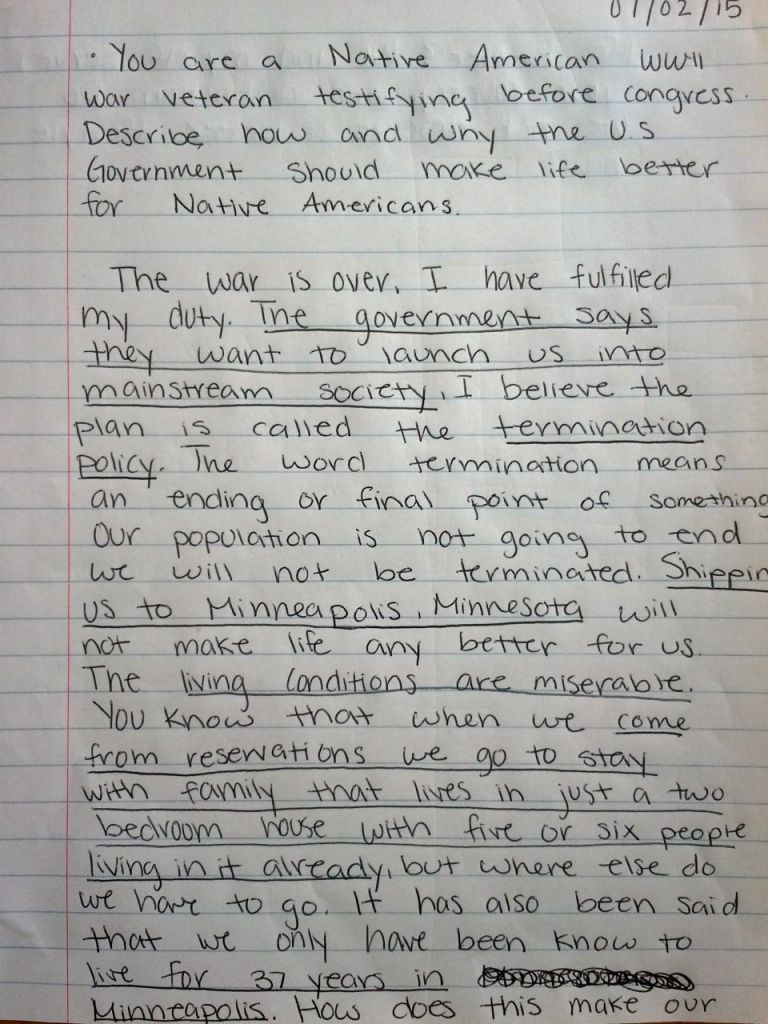 01/02/15
· You are a Native American WWII
war veteran testifying before congress.
Describe, how and why the U.S
Government should make life better
for Native Americans.
The war is over, I have fulfilled
my duty. The government says
they want to launch us into
mainstream society, I believe the
plan is called the termination
policy. The word termination means
an ending or final point of something
Our population is not going to end
we will not be terminated. Shippin
us to Minneapolis, Minnesota will
not make life any better for us.
The living conditions are miserable.
You know that when we come
from reservations we go to stay
with family that lives in just a two
bedroom house with five or six people
living in it already, but where else do
we have to go. It has also been said
that we only have been know to
live for 37 years in
Minneapolis. How does this make our